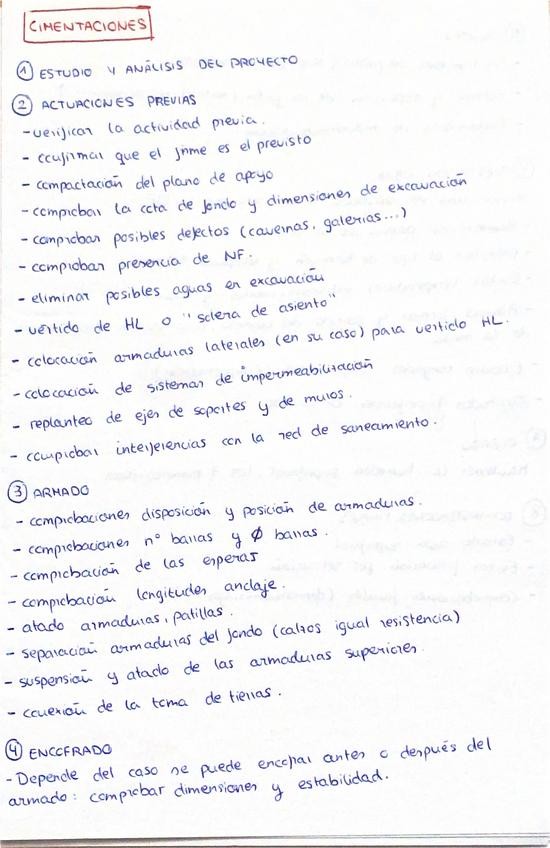 CIMENTACIONES
① ESTUDIO Y ANÁLISIS DEL PROYECTO
② ACTUACIONES PREVIAS
- verificar la actividad previa.
- confirmar que el firme es el previsto
- compactación del plano de apoyo
- comprobar la cota de fondo y dimensiones de excavación
- comprobar posibles defectos (cavernas, galerías...)
- comprobar presencia de NF.
- eliminar posibles aguas en excavación
- vertido de HL o "solera de asiento"
- colocación armaduras laterales (en su caso) para vertido HL.
- colocación de sistemas de impermeabilización
- replanteo de ejes de soportes y de muros.
- comprobar interferencias con la red de saneamiento.
③ ARMADO
- comprobaciones disposición y posición de armaduras.
- comprobaciones nº barras y Ø barras.
- comprobación de las esperas
- comprobación longitudes anclaje.
- atado armaduras, patillas.
- separación armaduras del fondo (calzos igual resistencia)
- suspensión y atado de las armaduras superiores.
- conexión de la toma de tierras.
④ ENCOFRADO
- Depende del caso se puede encofrar antes o después del
armado: comprobar dimensiones y estabilidad.